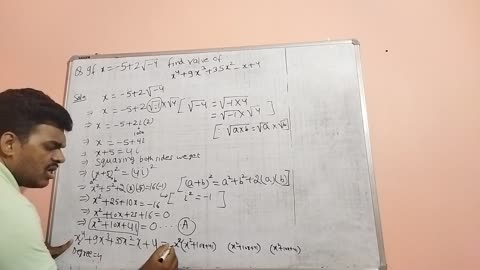 Q8 If x = -5+2√-4 find value of
x⁴+9x³+35x²-x+4
Soln x = -5+2√-4
⇒ x = -5+2√-1 × √4 [ √-4 = √-1×4
= √-1 × √4
⇒ x = -5+2i(2) [ √a×b = √a × √b ]
⇒ x = -5+4i
⇒ x+5 = 4i
⇒ squaring both sides we get
⇒ (x+5)² = (4i)²
⇒ x²+5²+2(x)(5) = 16(-1) [ (a+b)² = a²+b²+2(a)(b)
⇒ x²+25+10x = -16 [ i² = -1
⇒ x²+10x+25+16 = 0
⇒ x²+10x+41 = 0 ... A
x⁴+9x³+35x²-x+4 = x²(x²+10x+41) (x²+10x+41) (x²+10x+41)
Degree=4